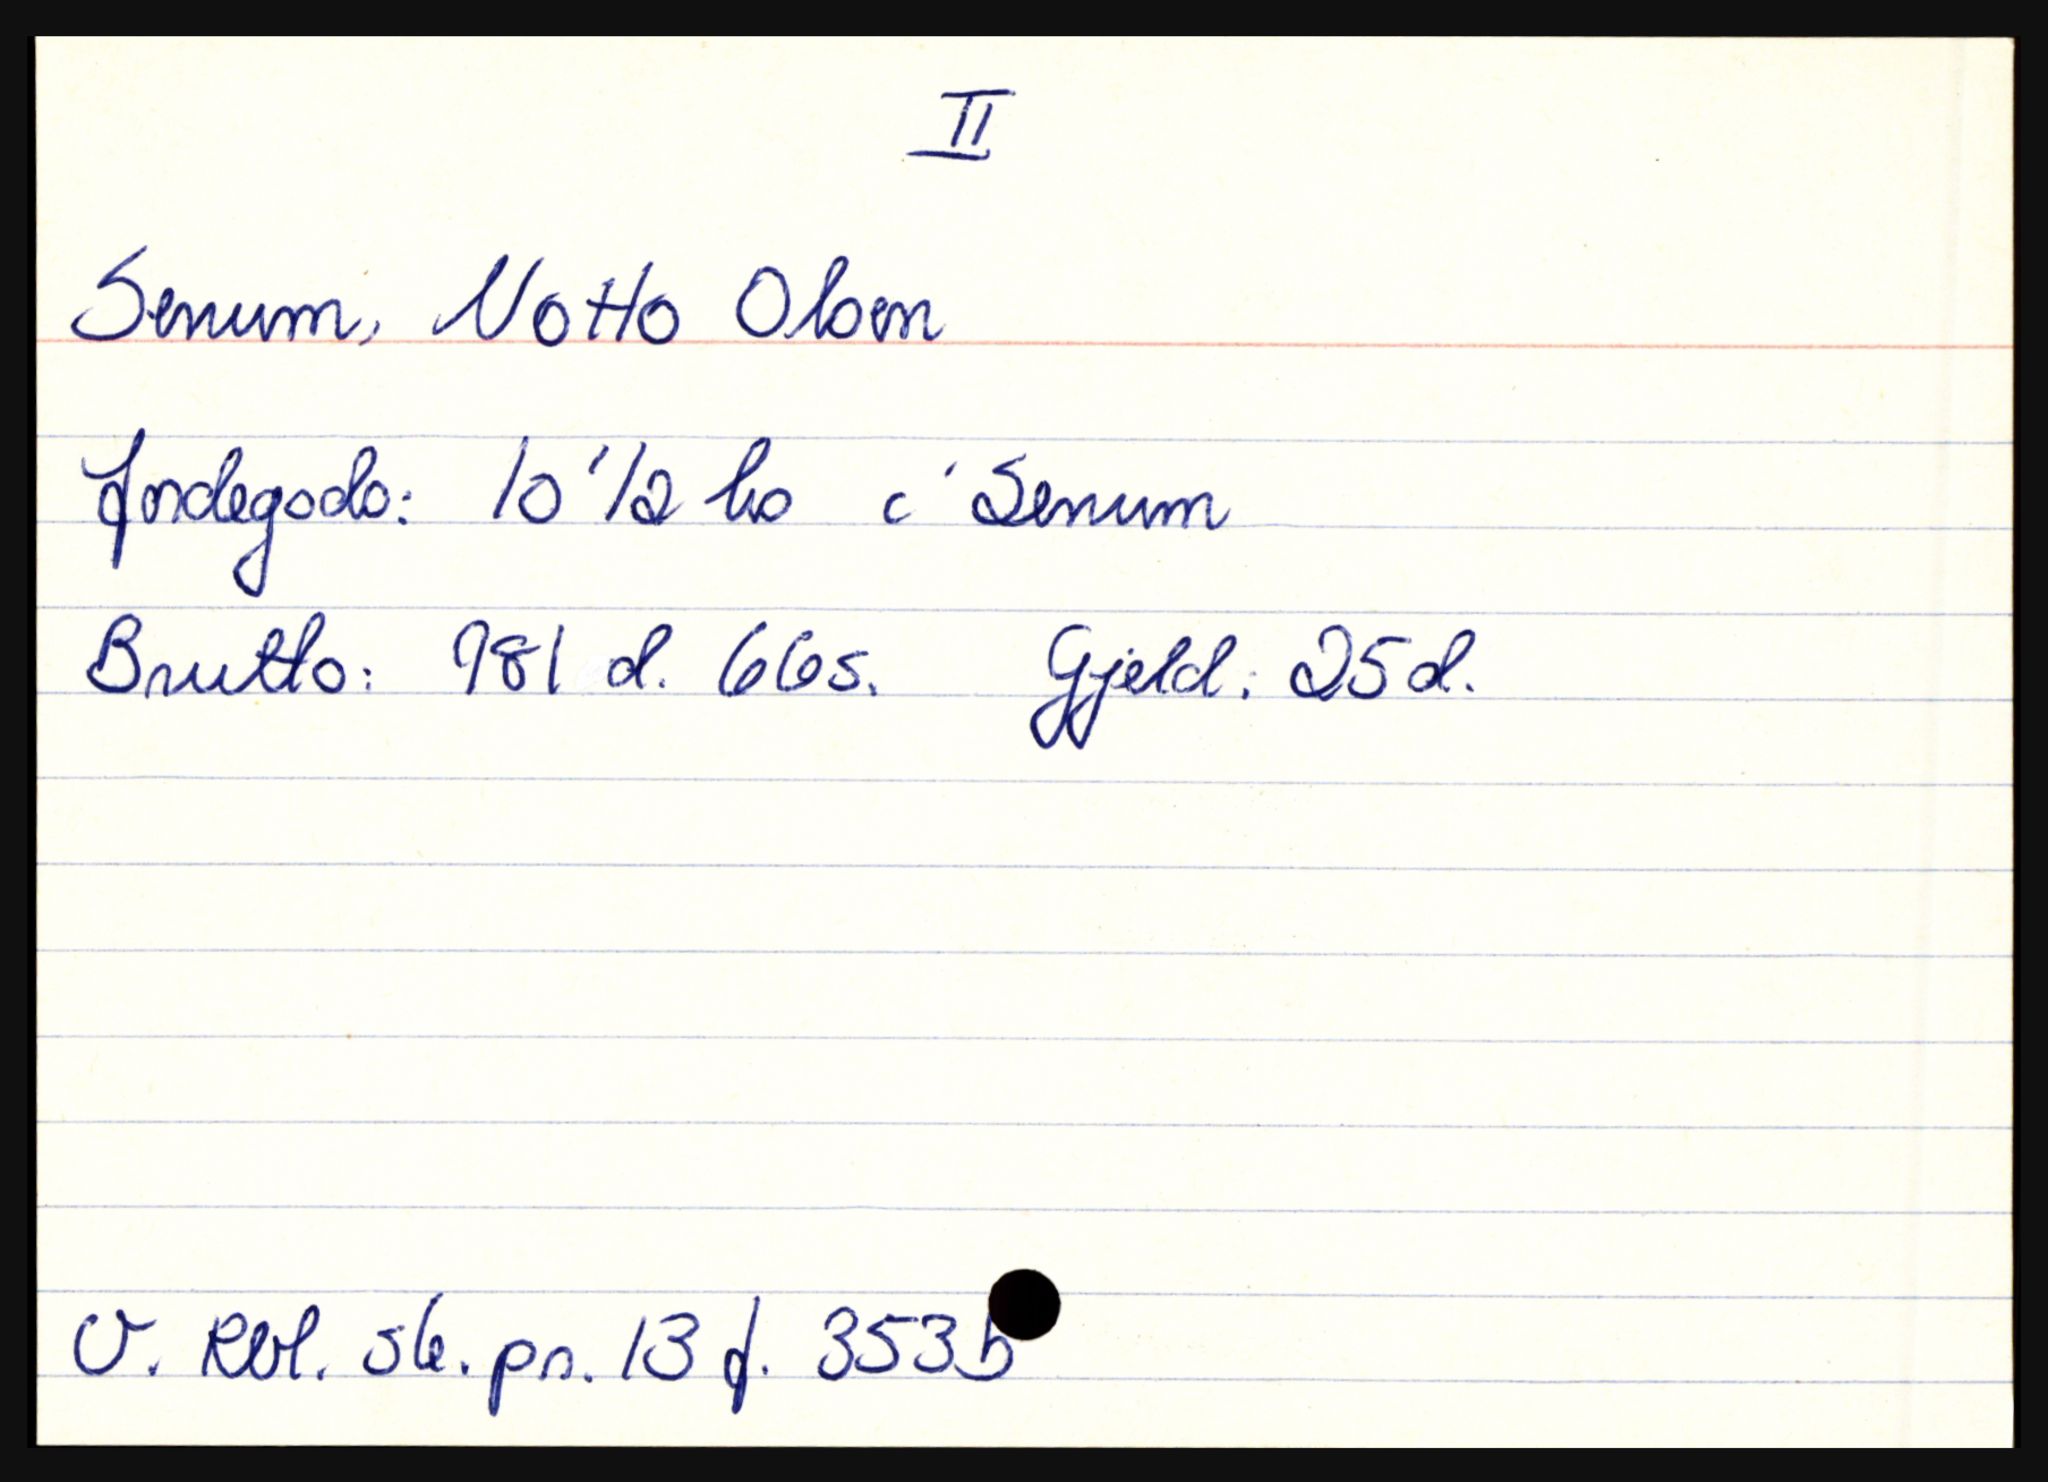 II
Senum, Notto Olsen
Jordegods: 10 1/2 hs i Senum
Brutto: 981 d. 66 s. Gjeld: 25 d.
V. Rbl. sk. pr. 13 f. 353b